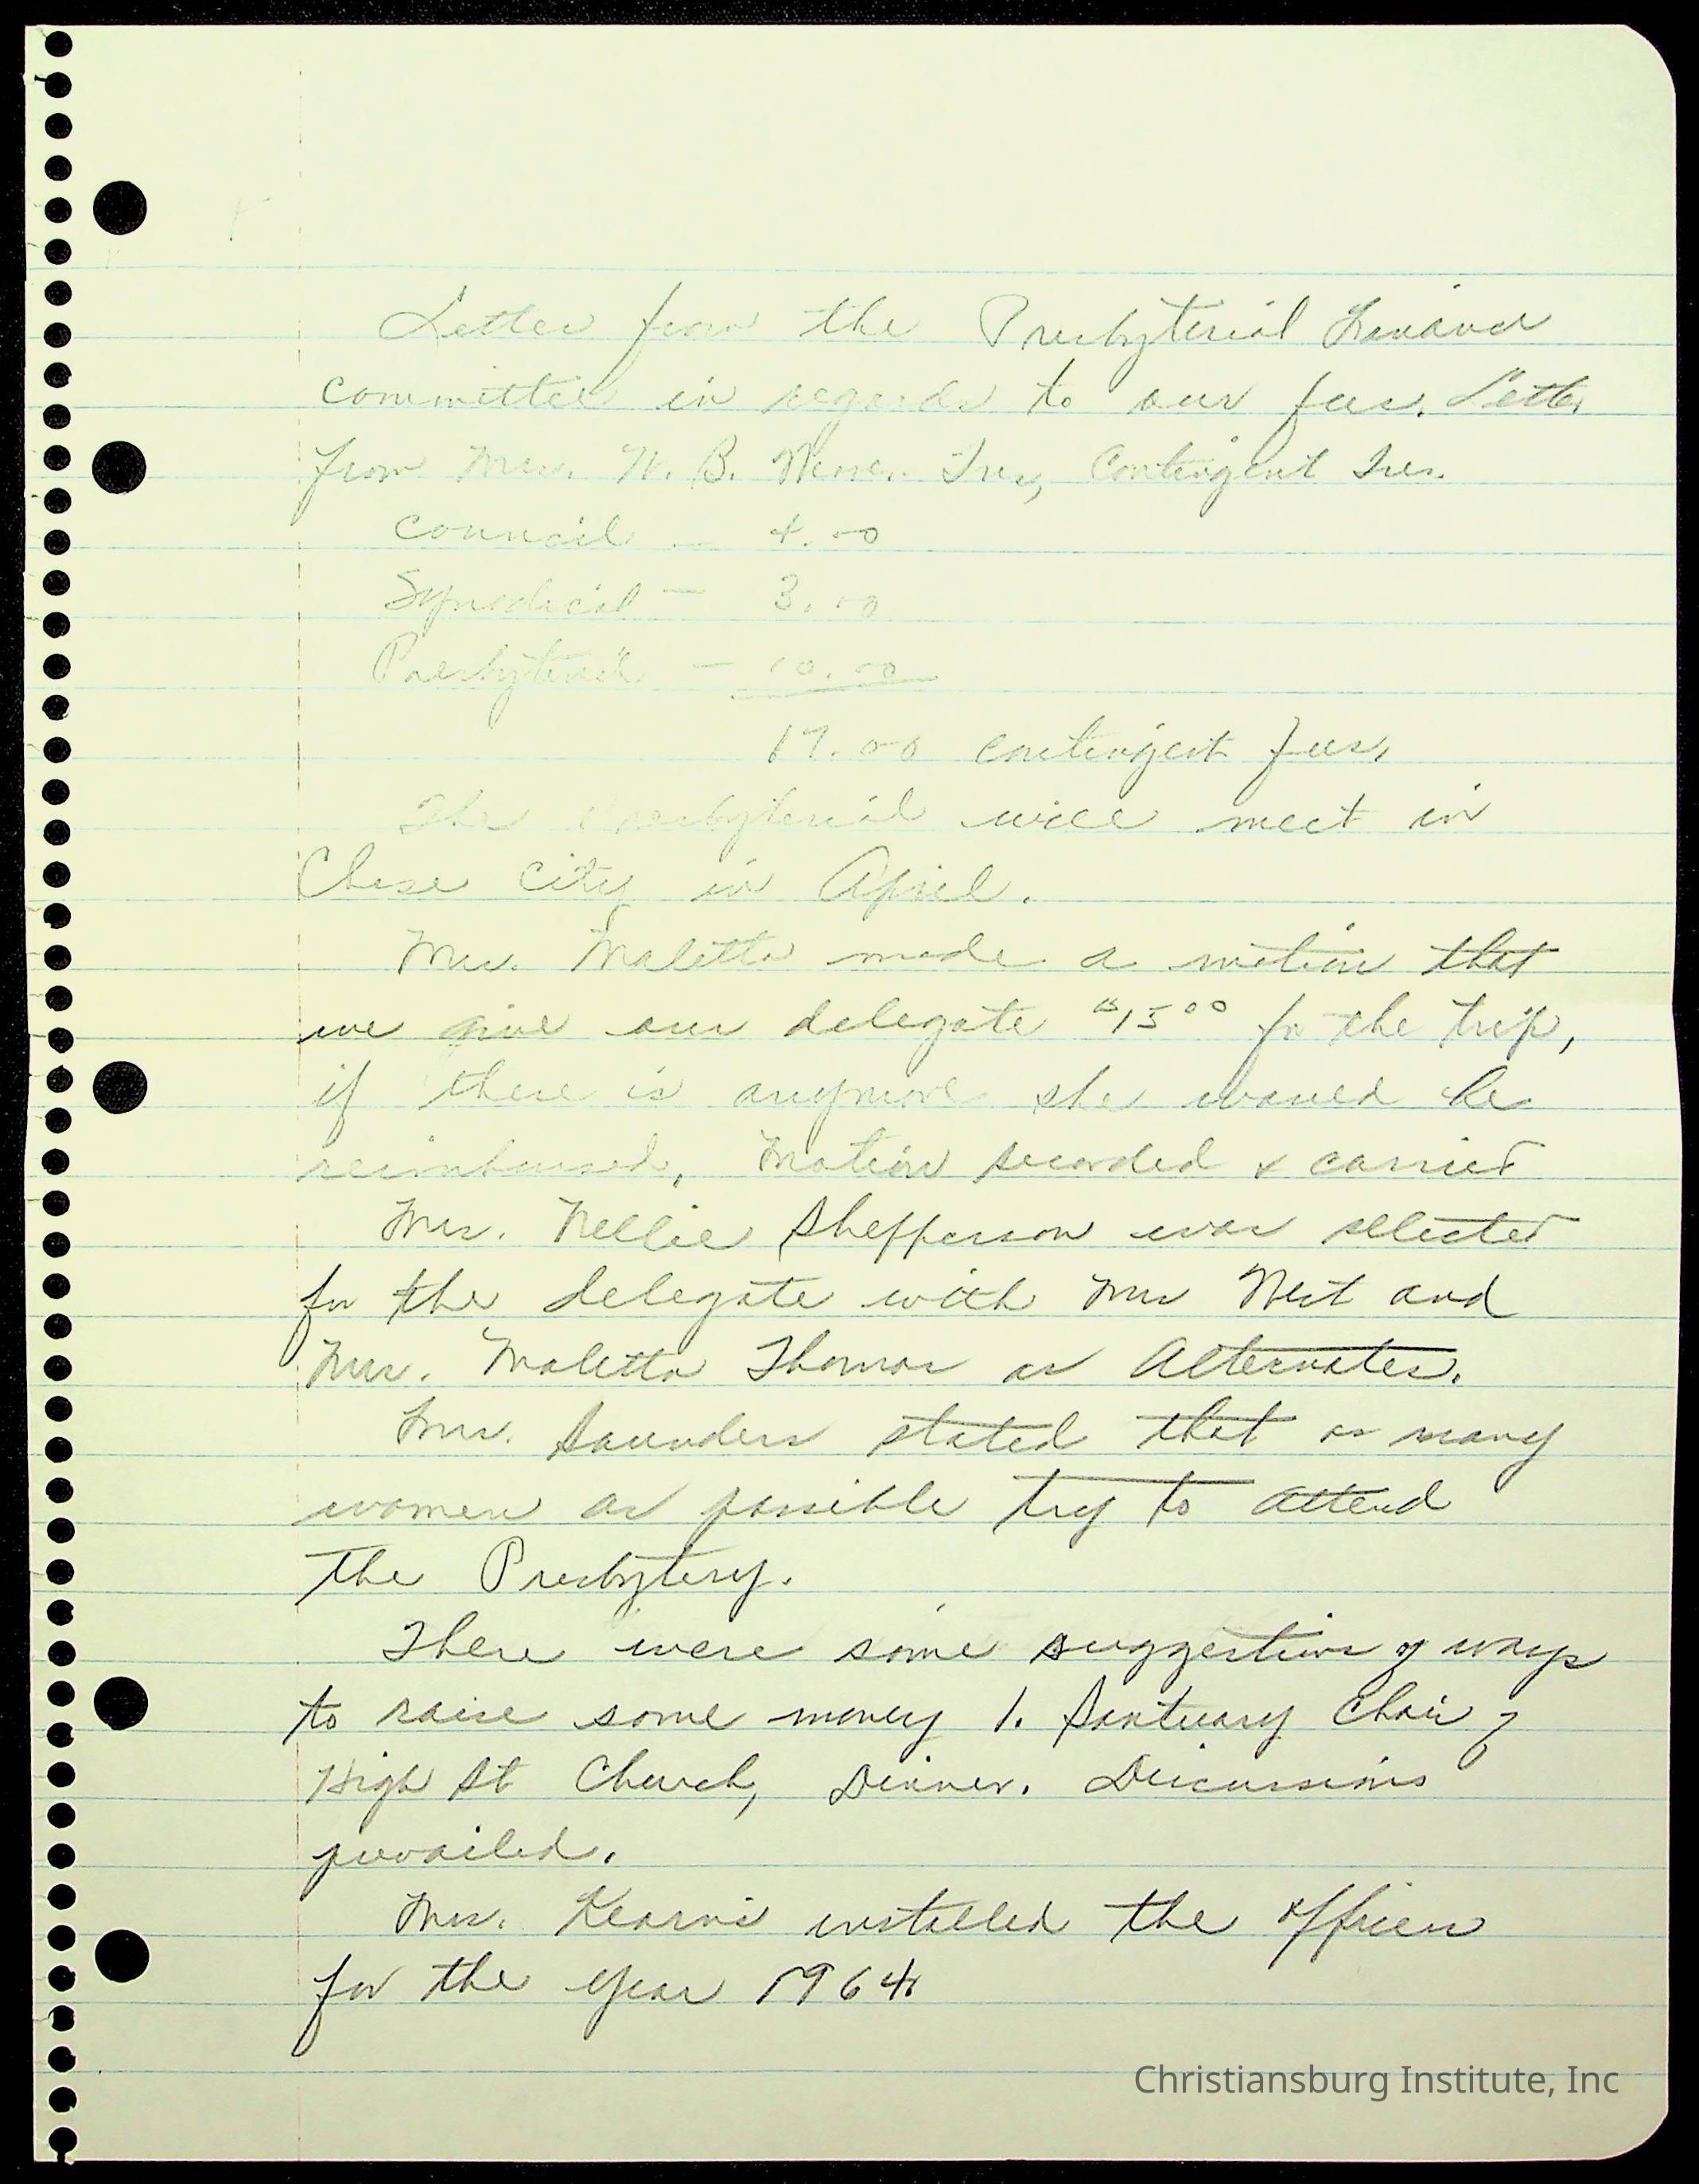 Letter from the Presbyterial Finance
committee in regards to our fees. Letter
from Mrs. W. B. Tres, Contingent Tres.
Council - 4.00
Synodical - 3.00
Presbyterial - 10.00
17.00 contingent fees,
The Presbyterial will meet in
Chase City in April.
Mrs. Maletta made a motion that
we give our delegate $15.00 for the trip,
if there is anymore she would be
reimbursed, Motion seconded & carried
Mrs. Nellie Shepperson was selected
for the delegate with Mrs West and
Mrs. Maletta Thomas as Alternates.
Mrs. Saunders stated that as many
women as possible try to attend
the Presbytery.
There were some suggestions of ways
to raise some money 1. Santuary Choir of
High St Church, Dinner. Discussions
prevailed.
Mrs. Kearns installed the officers
for the year 1964
Christiansburg Institute, Inc